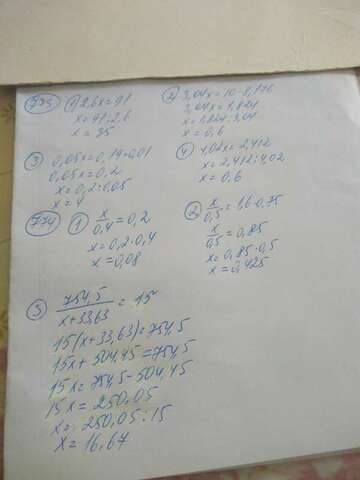 773 1) 2,6x=91
x=91:2,6
x=35
2) 3,04x=10-8,176
3,04x=1,824
x=1,824:3,04
x=0,6
3) 0,05x=0,19+0,01
0,05x=0,2
x=0,2:0,05
x=4
4) 4,02x=2,412
x=2,412:4,02
x=0,6
774 1) x/0,4=0,2
x=0,2·0,4
x=0,08
2) x/0,5=1,6-0,75
x/0,5=0,85
x=0,85·0,5
x=0,425
3 754,5/x+33,63=15
15(x+33,63)=754,5
15x+504,45=754,5
15x=754,5-504,45
15x=250,05
x=250,05:15
x=16,67